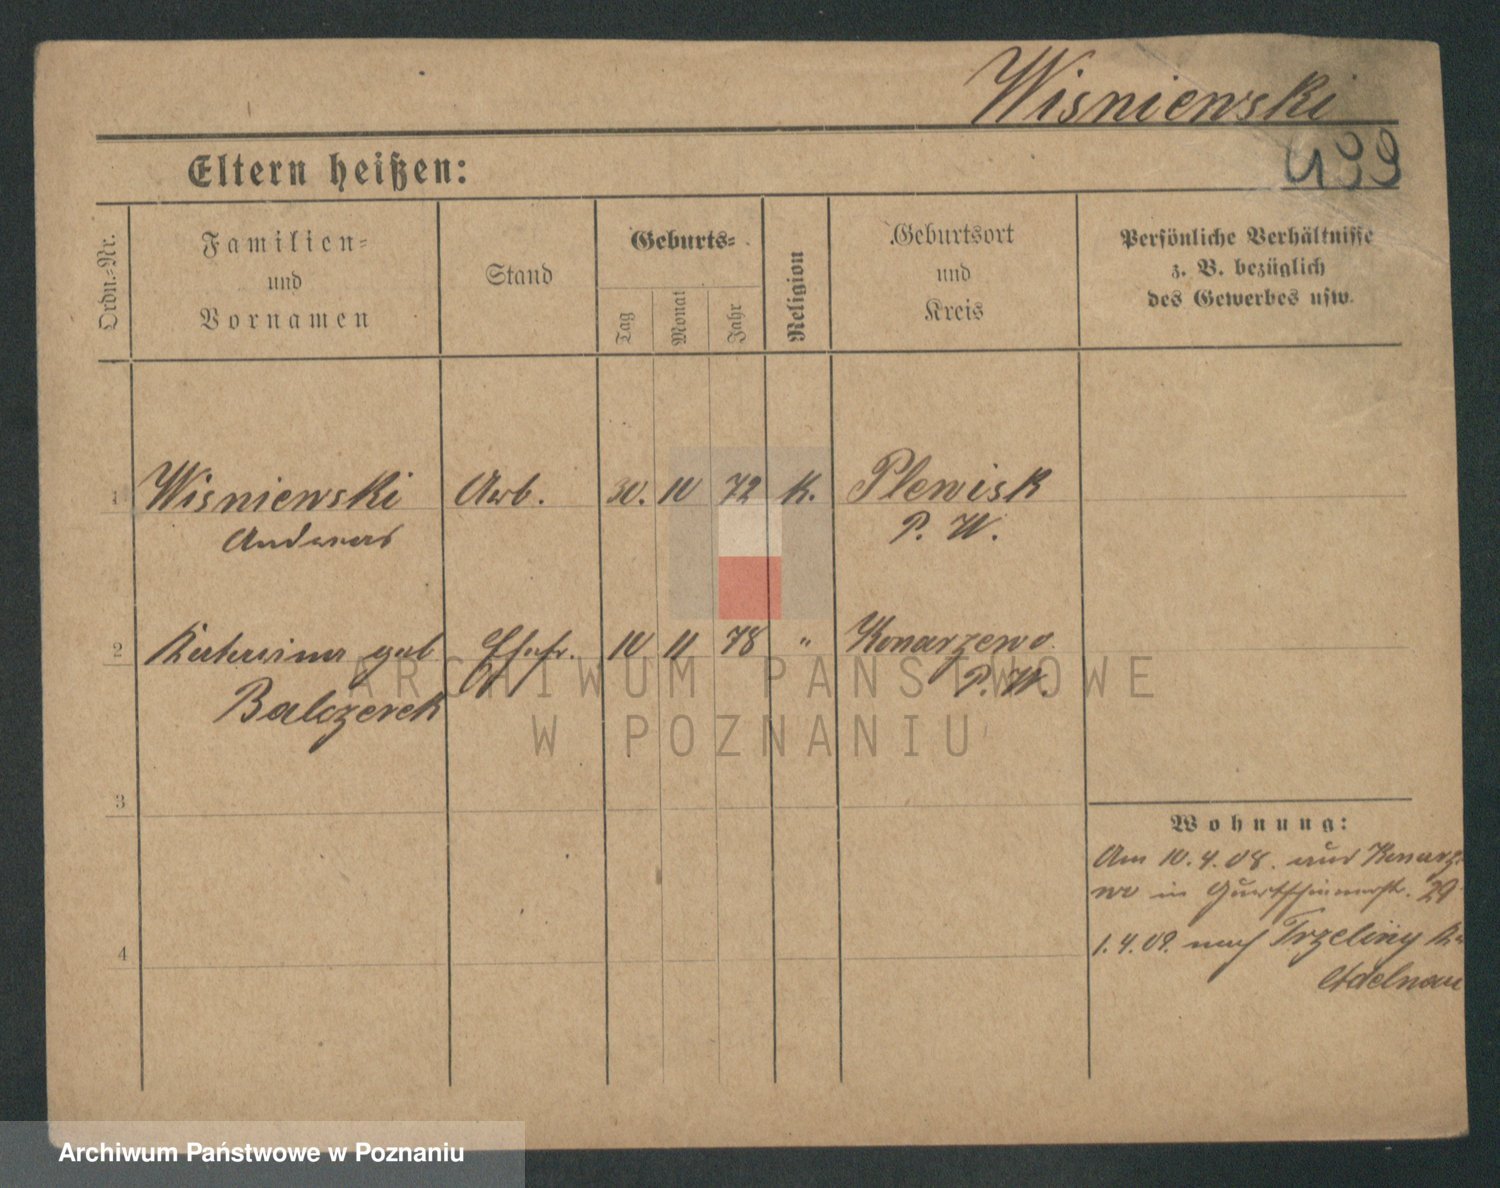 Wisniewski
499
Eltern heißen:
Ordn.-Nr.
Familien-
und
Vornamen
Stand
Geburts-
Tag
Monat
Jahr
Religion
Geburtsort
und
Kreis
Persönliche Verhältnisse
z. B. bezüglich
des Gewerbes usw.
1 Wisniewski Arb. 30. 10 72 K. Plewisk
Andreas P. W.
2 Katarina geb Ehefr. 10 11 78 " Konarzewo
Balczerek P. W.
3
Wohnung:
Am 10.4.08. aus Konarze
wo in Gurtschinerstr. 29
4
1.4.09. nach Trzeliny Kr
Adelnau
ARCHIWUM PAŃSTWOWE
W POZNANIU
Archiwum Państwowe w Poznaniu